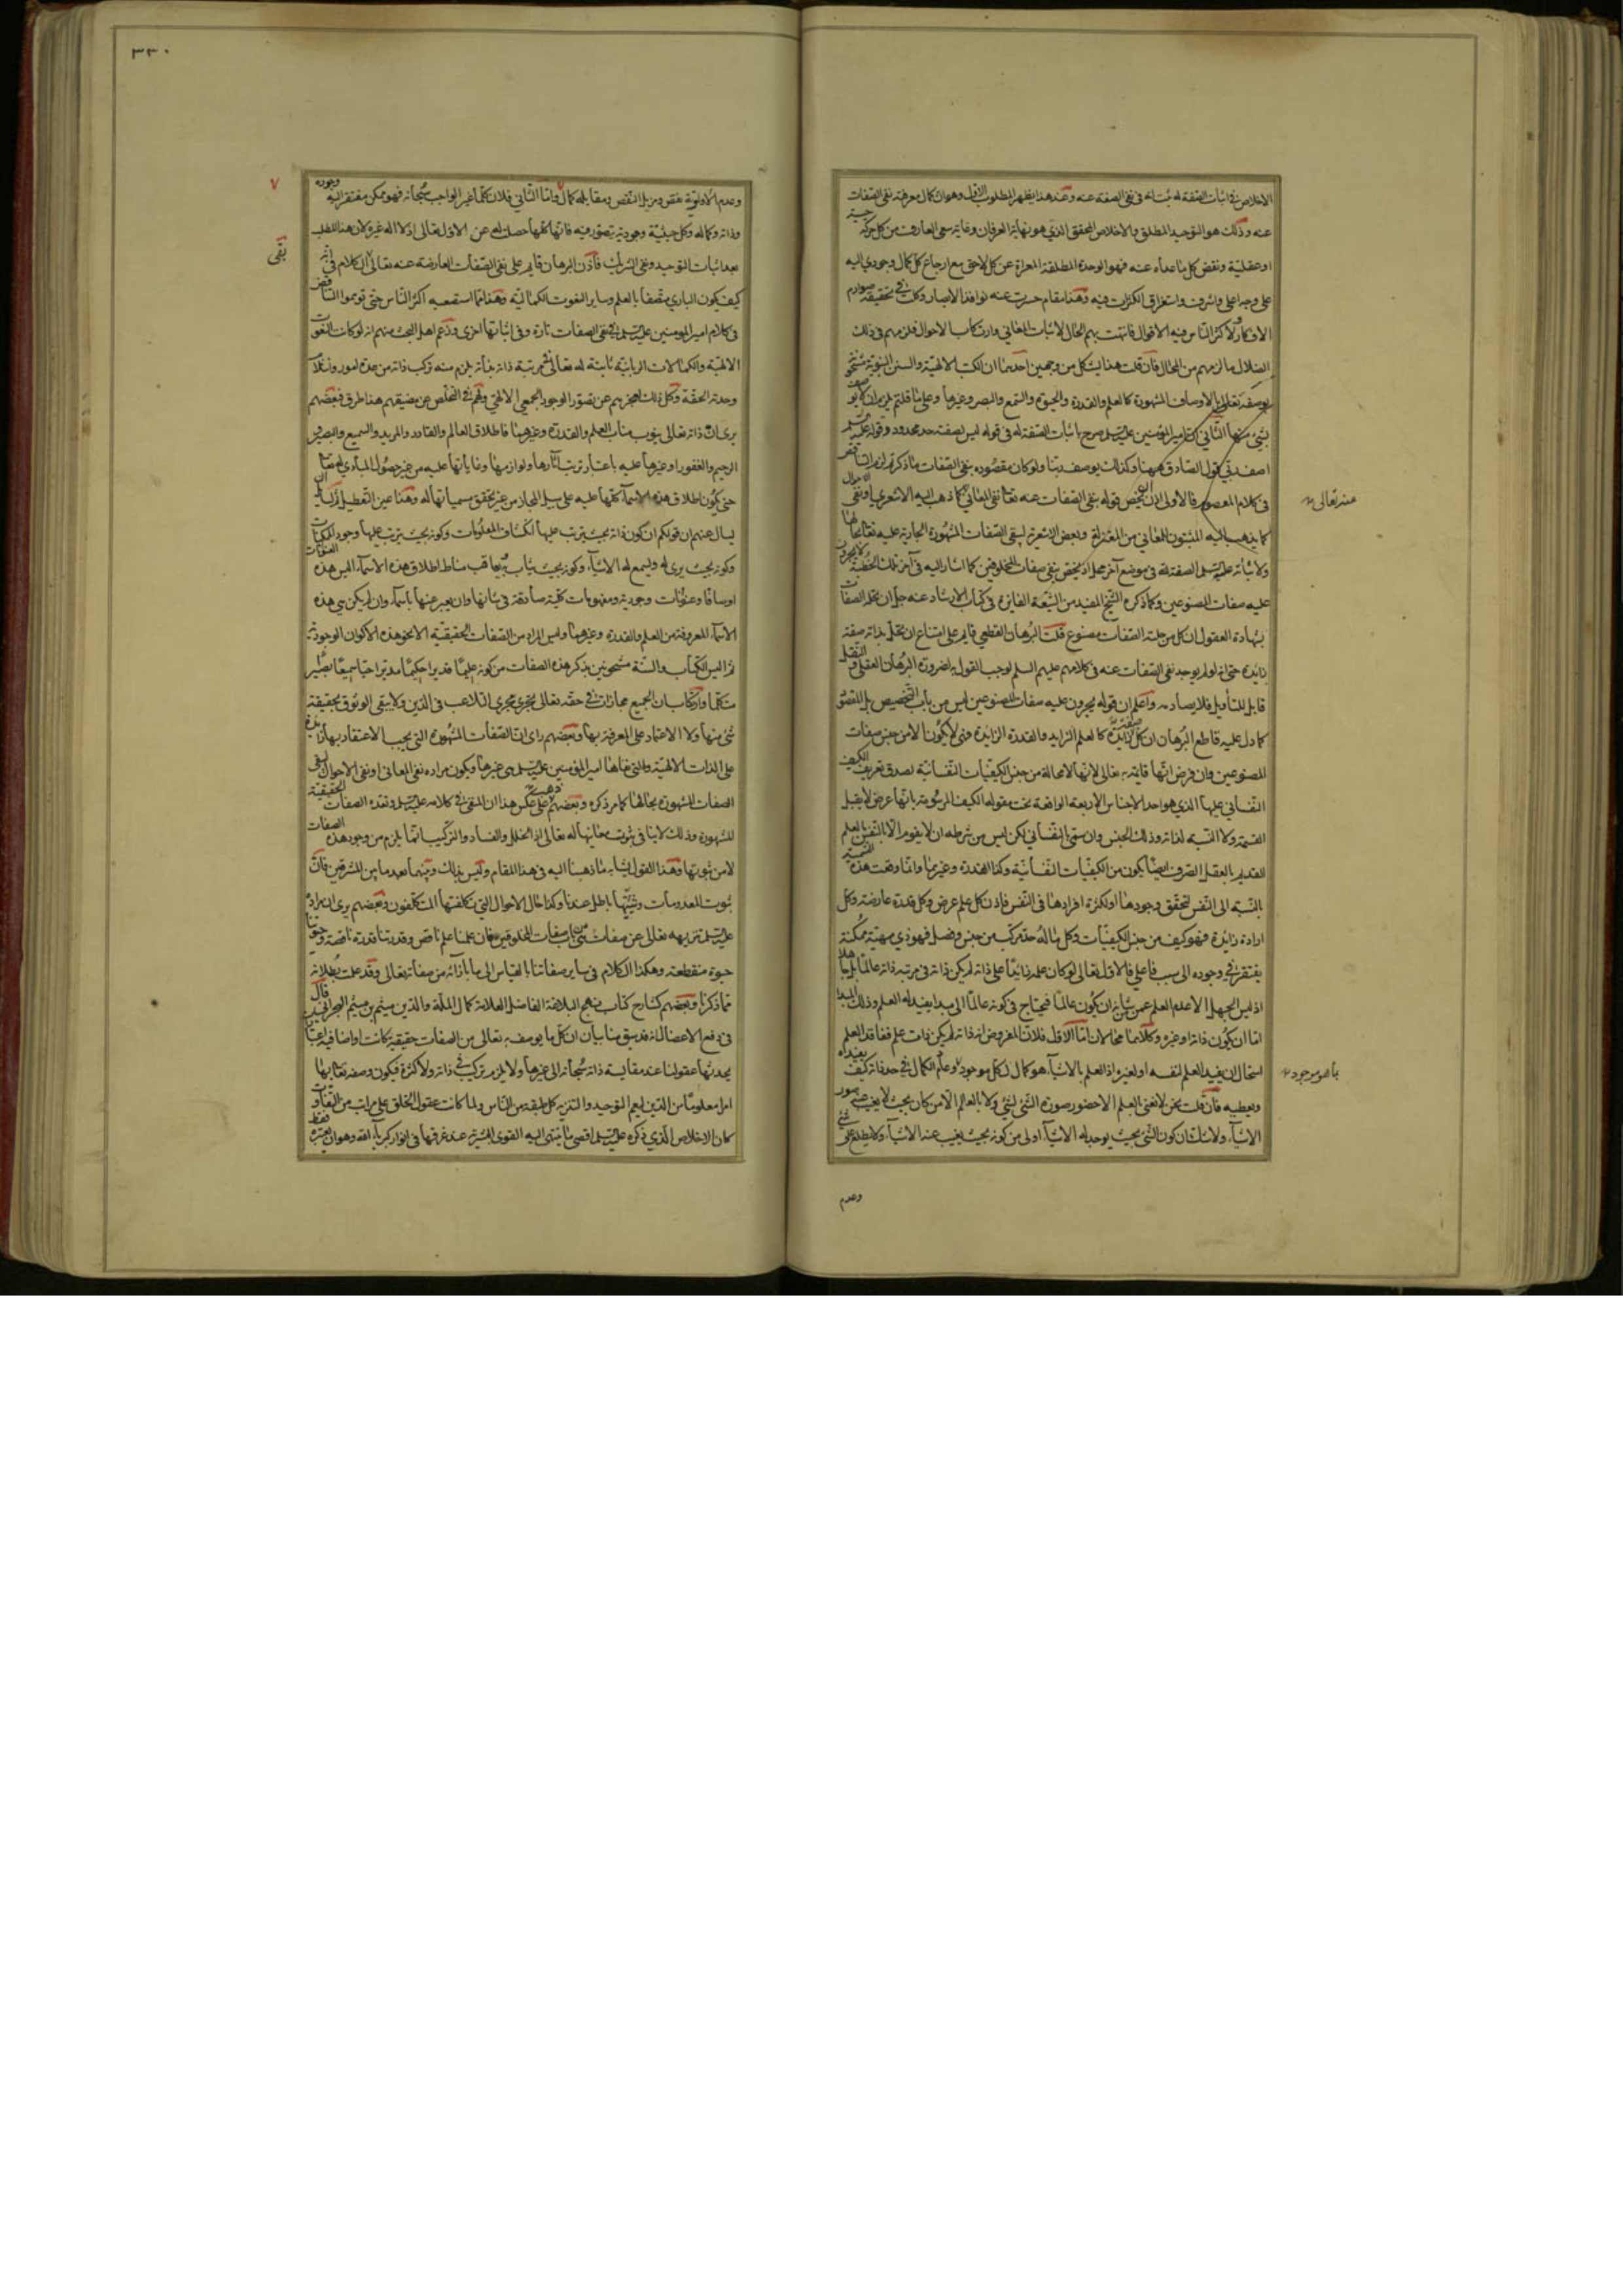 الاخلاص في اثبات الصفة له بتمامه في نفى الصفة عنه وعند هذا يظهر المطلوب الاول وهو ان كمال معرفته نفى الصفات
عنه وذلك هو التوحيد المطلق والاخلاص المحقق الذي هو نهاية العرفان وغاية سعى العارف من كل حركة حسية
او عقلية ونقض كل ما عداه عنه فهو الوحدة المطلقة المعراة عن كل لاحق مع ارجاع كل كمال وجودي اليه
على وجه اعلى واشرف واستغراق الكثرات فيه وهذا مقام حسرت عنه نوافذ الابصار وكلت في تحقيقه صوارم
الافكار ولاكثر الناس فيه الاقوال فانتهت بهم الحال لاثبات المعاني وارتكاب الاحوال فلزمهم في ذلك
الضلال ما لزمهم من المحال فان قلت هذا يشكل من وجهين احدهما ان الكتب الالهية والسنن النبوية مشحونة
بوصفه تعالى بالاوصاف المشهورة كالعلم والقدرة والحيوة والسمع والبصر وغيرها وعلى ما قلتم يلزم ان لا يوصف
بشيء منها الثاني كلام امير المؤمنين عليه السلم صرح باثبات الصفة له في قوله ليس لصفته حد محدود وقوله عليه السلم
في كلام المعصوم فالاولى اذن ان يخص قوله بنفى الصفات عنه تعالى بنفى المعاني كما ذهب اليه الاشعري او نفى الاحوال
كما يذهب اليه المثبتون للمعاني من المعتزلة وبعض الاشعرية ليبقى الصفات المشهورة الجارية عليه تعالى بحالها
ولاثباته عليه السلم الصفة لله في موضع آخر محل او يخص بنفى صفات المخلوقين كما اشار اليه في آخر تلك الخطبة لا يجرون
عليه صفات المصنوعين وكما ذكره الشيخ المفيد من الشيعة الفايزه في كتاب الارشاد عنه جل ان تحله الصفات
بشهادة العقول ان كل من حلته الصفات مصنوع قلت البرهان القطعي قايم على امتناع ان يحل بذاته صفة
زايدة حتى انه لو لم يوجد نفى الصفات عنه في كلامهم عليهم السلم لوجب القول به لضرورة البرهان العقلى والنقل
قابل للتأويل فلا يصادمه واعلم ان قوله يجرون عليه صفات المصنوعين ليس من باب التخصيص بل للتصوير
كما دل عليه قاطع البرهان ان كل صفة زائدة كالعلم الزايد والقدرة الزايدة فهي لا يكون الا من جنس صفات
المصنوعين وان فرض انها قايمة به تعالى لانها لا محالة من جنس الكيفيات النفسانية لصدق تعريف الكيف
النفساني عليها الذي هو احد الاجناس الاربعة الواقعة تحت مقولة الكيف المرسومة بانها عرض لا يقبل
القسمة ولا النسبة لذاته وذلك الجنس وان سمى بالنفساني لكن ليس من شرطه ان لا يقوم الا بالنفس بل العلم
القديم بالعقل الصرف ايضا يكون من الكيفيات النفسانية وكذا القدرة وغيرها وانما وقعت هذه التسمية
بالنسبة الى النفس لتحقق وجودها او لكثرة افرادها في النفس فاذن كل علم عرض وكل قدرة عارضة وكل
ارادة زايدة فهو كيف من جنس الكيفيات وكل ما له حد مركب من جنس وفصل فهو ذي مهية ممكنة
يفتقر في وجوده الى سبب فاعلي فالاول تعالى لو كان علمه زائدا على ذاته لم يكن ذاته في مرتبة ذاته عالما بل جاهلا
اذ ليس الجهل الا عدم العلم عمن شانه ان يكون عالما فيحتاج في كونه عالما الى مبدا يفيد له العلم وذلك المبدا
اما ان يكون ذاته او غيره وكلاهما محالان اما الاول فلان المفروض انه ذاته لم يكن ذات علم ففاقد العلم
استحال ان يفيد العلم لنفسه او لغيره اذ العلم بالاشياء هو كمال لكل موجود وعادم الكمال في حد ذاته كيف يفيده
ويعطيه فان قلت نحن لا نعنى بالعلم الا حضور صورة الشيء لشيء ولا بالعالم الا من كان بحيث لا يغيب عنه صور
الاشياء ولا شك ان كون الشيء بحيث يوجد له الاشياء اولى من كونه بحيث يغيب عنه الاشياء ولا يطلع على شيء
وعدم
عنه تعالى
بما هو موجود
٣٣٠
وعدم الاولوية نقص ومزيل النقص ومقابله كمال واما الثاني فلان كلما غير الواجب سبحانه فهو ممكن مفتقر اليه وجوده
وذاته وكماله وكل حيثية وجودية يتصور فيه فانها كلها حصلت له عن الاول تعالى اذ لا اله غيره لان هذا المطلب
بعد اثبات التوحيد ونفى الشريك فاذن البرهان قايم على نفى الصفات العارضة عنه تعالى الكلام في انه
كيف يكون الباري متصفا بالعلم وساير النعوت الكمالية وهذا مما استصعبه اكثر الناس حتى توهموا التناقض
في كلام امير المؤمنين عليه السلم في نفى الصفات تارة وفي اثباتها اخرى وزعم اهل البحث منهم انه لو كانت النعوت
الالهية والكمالات الربانية ثابتة له تعالى في مرتبة ذاته بذاته يلزم منه تركب ذاته من عدة امور
وحدته الحقة وكل ذلك لعجزهم عن تصور الوجود الجمعي الالهي ولهم في التخلص عن مضيقهم هنا طرق فبعضهم
يرى ان ذاته تعالى ينوب مناب العلم والقدرة وغيرهما فاطلاق العالم والقادر والمريد والسميع والبصير و
الرحيم والغفور او غيرها عليه باعتبار ترتب آثارها ولوازمها وغاياتها عليه من غير حصول المبادي له تعالى
حتى يكون اطلاق هذه الاسماء كلها عليه على سبيل المجاز من غير تحقق مسمياتها له وهذا عين التعطيل
يسال عنهم ان قولكم ان كون ذاته بحيث يترتب عليها انكشاف المعلومات وكونه بحيث يترتب عليها وجود الممكنات
وكونه بحيث يرى له ويسمع له الاشياء وكونه بحيث يثاب به يعاقب مناط اطلاق هذه الاسماء اليس هذه العنوانات
اوصافا وعنوانات وجودية ومفهومات كلية صادقة في شانها وان يعبر عنها باسماء وان لم يكن هي هذه
الاسماء المعروفة من العلم والقدرة وغيرهما وليس المراد من الصفات الحقيقية الا نحو هذه الاكوان الوجودية
ثم اليس الكتاب والسنة مشحونين بذكر هذه الصفات من كونه عليما قديرا حكيما مدبرا حيا سميعا بصيرا
متكلما وارتكاب ان الجميع مجازات في حقه تعالى يجري مجرى التلاعب في الدين ولا يبقى الوثوق بحقيقة
شيء منها ولا الاعتماد على المعرفة بها وبعضهم راى ان الصفات المشهورة التي يجب الاعتقاد بها زايدة
على الذات الالهية والتي نفاها امير المؤمنين عليه السلم هي غيرها ويكون مراده نفى المعاني او نفى الاحوال ليبقى
الصفات المشهورة بحالها كما مر ذكره وبعضهم ذهب على عكس هذا ان المنفى في كلامه عليه السلم هذه الصفات الحقيقية
المشهورة وذلك لا ينافي ثبوت معانيها له تعالى اذ الخلل والفساد والتركيب انما يلزم من وجود هذه الصفات
لا من ثبوتها وهذا القول يشابه ما ذهبنا اليه في هذا المقام وليس بذلك وبينهما بعد ما بين المشرقين فان
ثبوت المعدومات وشيئيتها باطل عندنا وكذا حال الاحوال التي يتكلفتها المتكلفون وبعضهم يرى ان مراده
عليه السلم تنزيهه تعالى عن صفات شيء من باب صفات المخلوقين فان علمنا علم ناقص وقدرتنا قدرة ناقصة وحيوتنا
حيوة منقطعة وهكذا الكلام في ساير صفاتنا بالقياس الى ما بازائه من صفاته تعالى وقد علمت بطلانه
مما ذكرنا وبعضهم كشارح كتاب نهج البلاغة الفاضل العلامة كمال الملة والدين ميثم بن ميثم البحراني قال
في دفع الاعضال انه قد سبق منا بيان ان كل ما يوصف به تعالى من الصفات حقيقية كانت او اضافية اعتبارات
يحدثها عقولنا عند مقايسة ذاته سبحانه الى غيرها ولا يلزم تركيب في ذاته ولا كثرة فيكون وصفه تعالى بها
امرا معلوما من الدين ليعم التوحيد والتنزيه كل طبقة من الناس ولما كانت عقول الخلق على مراتب من التفاوت
كان الاخلاص الذي ذكره عليه السلم اقصى ما ينتهي اليه القوى البشرية عند غرقها في انوار كبرياء الله وهو ان يعتبره فقط
بقى
٧